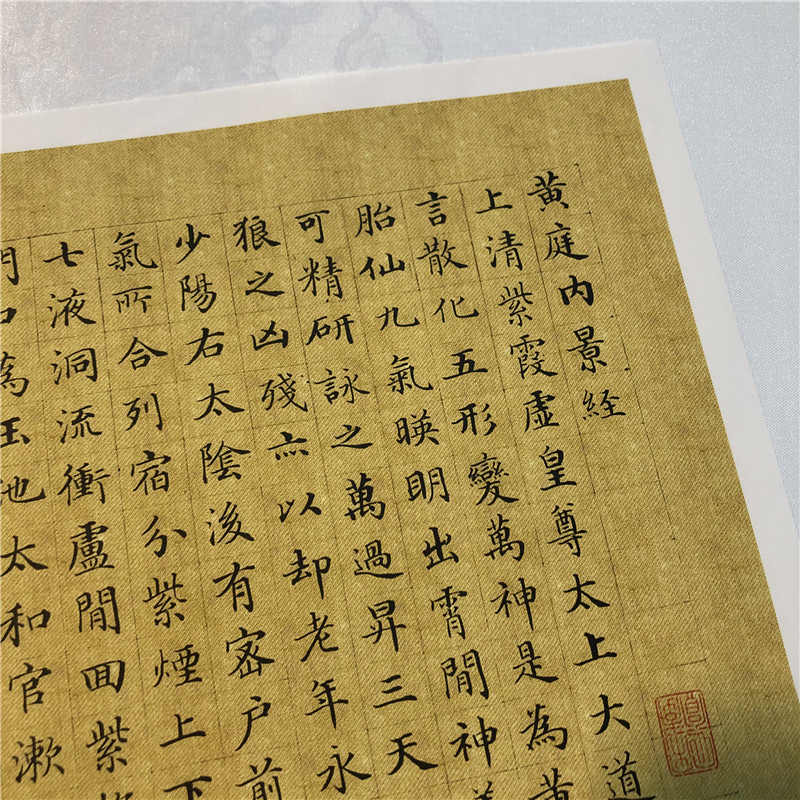 黄庭内景経
上清紫霞虛皇尊太上大道
言散化五形變萬神是為黃
胎仙九氣暎明出霄閒神
可精研詠之萬過昇三天
狼之凶殘亦以却老年永
少陽右太陰後有密户前
氣所合列宿分紫煙上下
七液洞流衝盧閒回紫
門口為玉池太和官漱